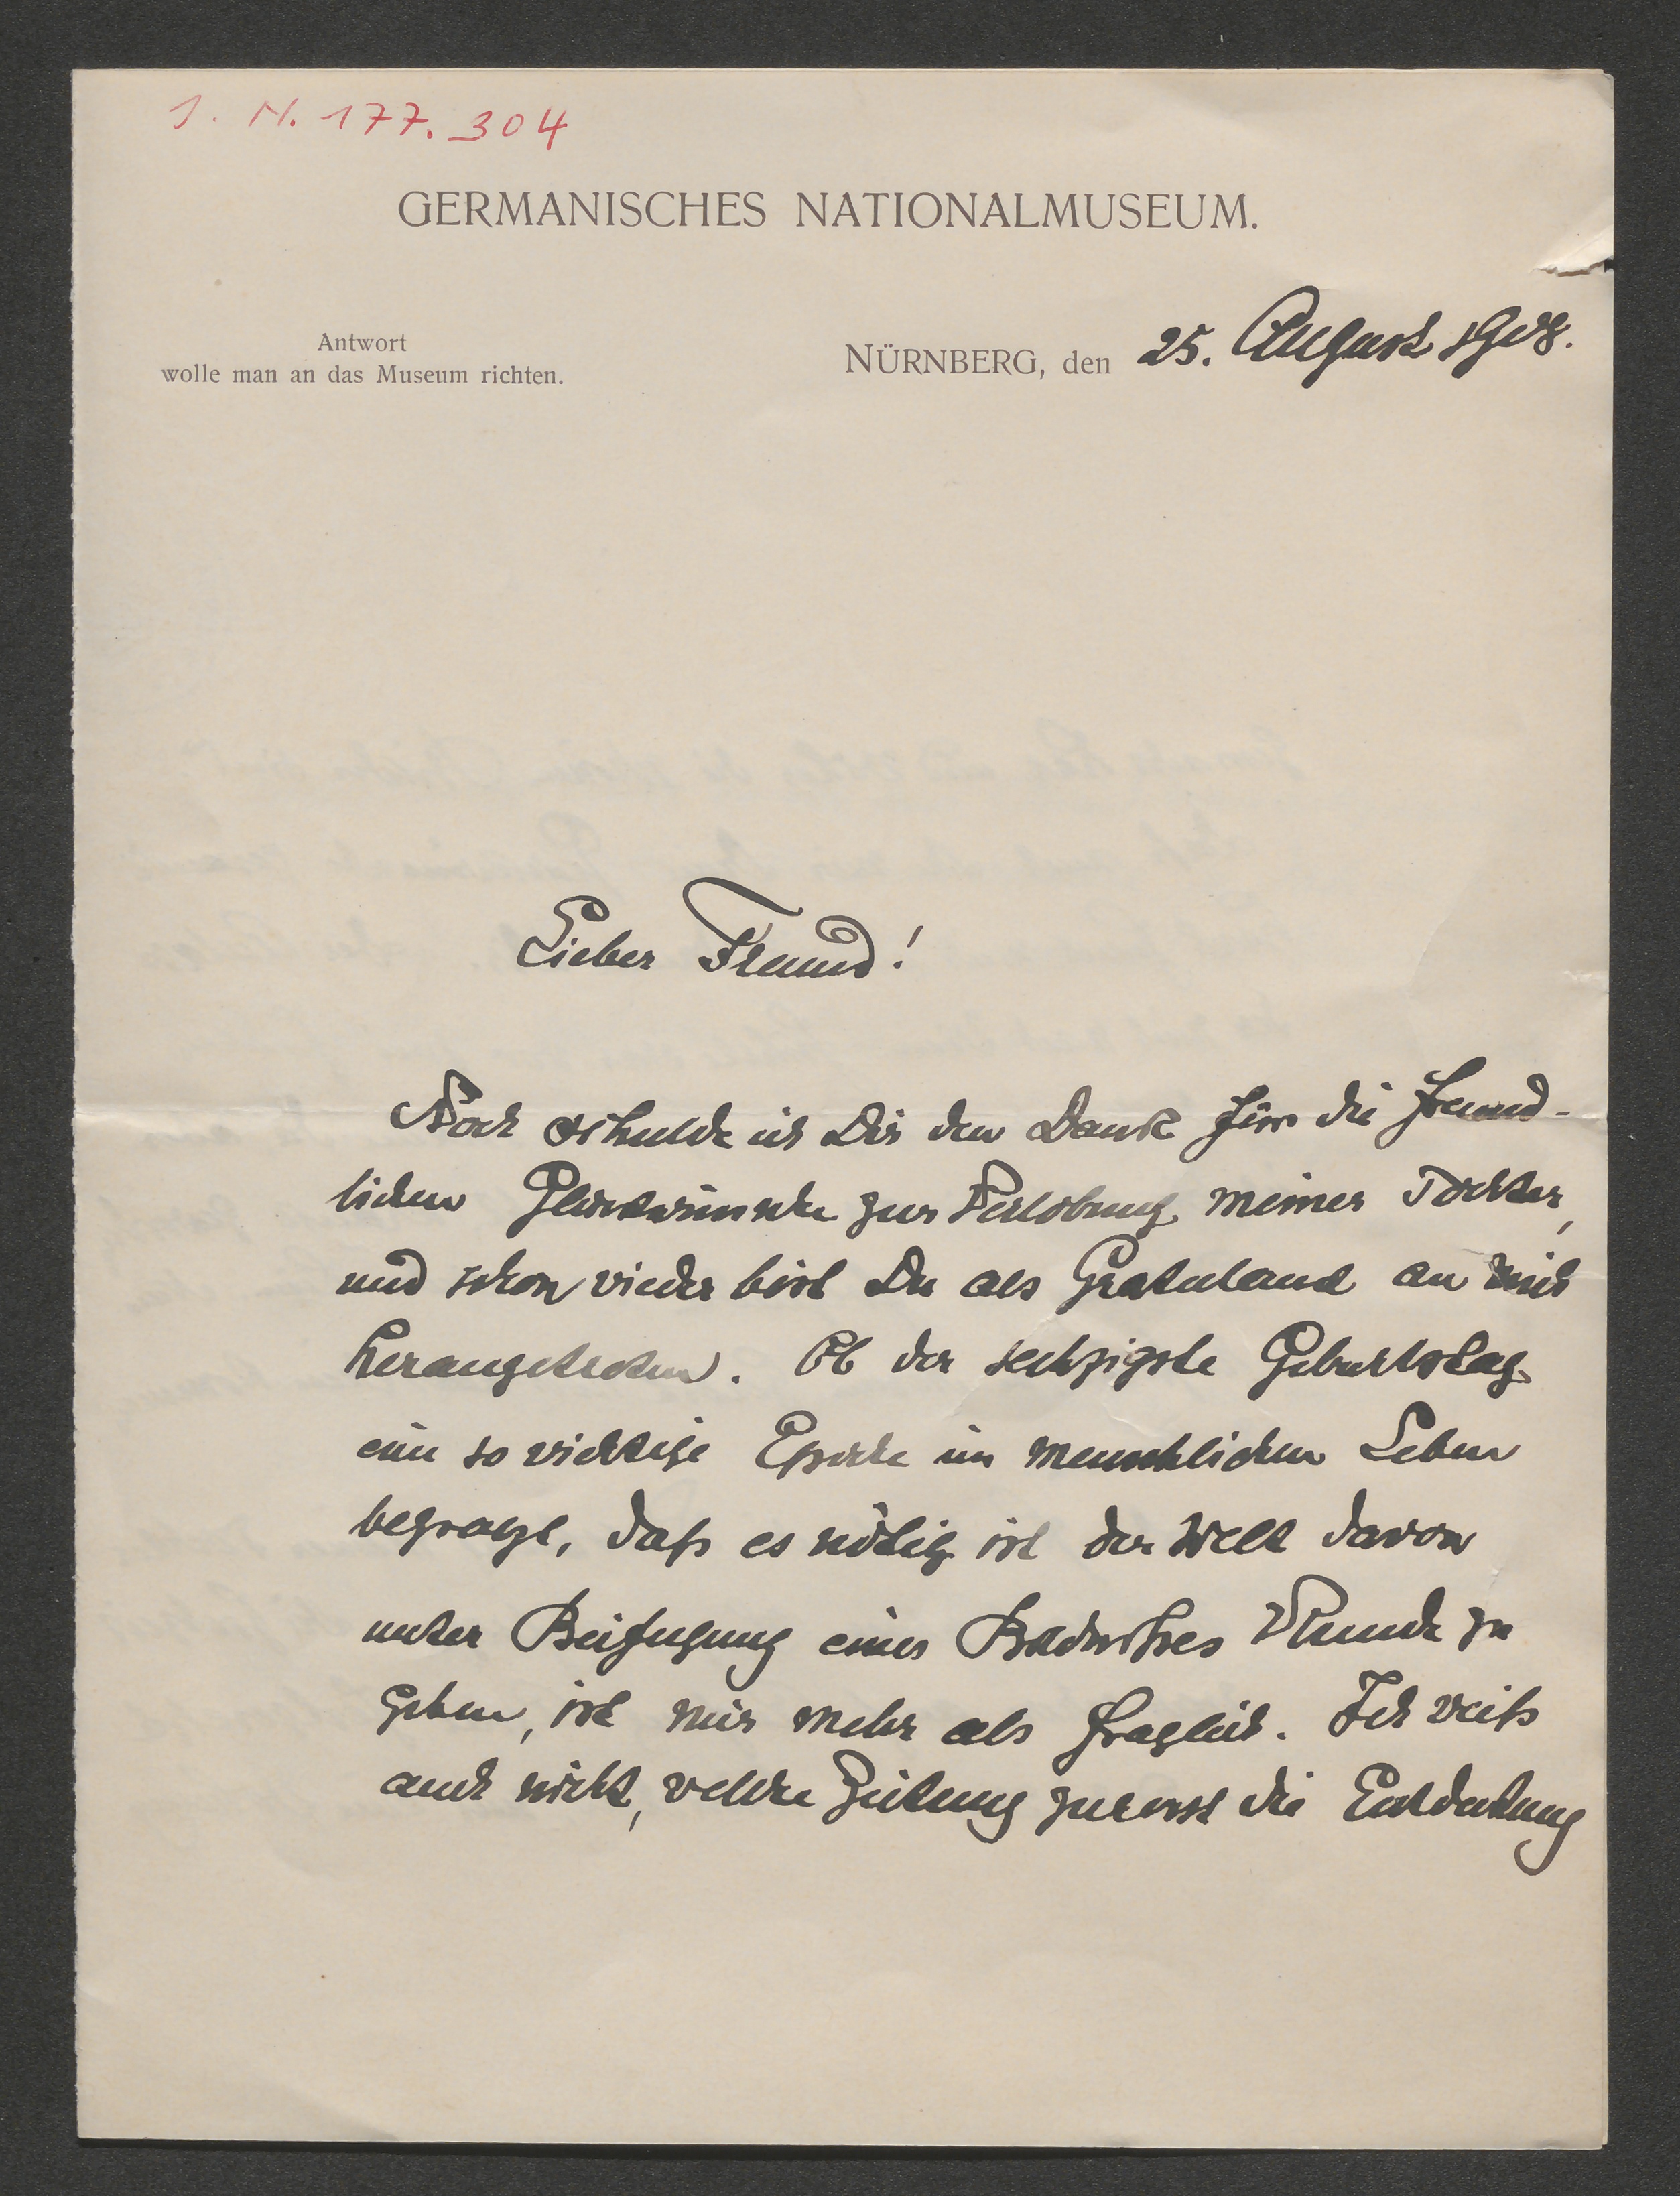 J. N. 177.304
GERMANISCHES NATIONALMUSEUM.
Antwort
wolle man an das Museum richten.
NÜRNBERG, den 25. August 1908.
Lieber Freund!
Noch schulde ich Dir den Dank für die freund-
lichen Glückwünsche zur Verlobung meiner Tochter,
und schon wieder bist Du als Gratulant an mich
herangetreten. Ob der sechzigste Geburtstag
eine so wichtige Epoche im menschlichen Leben
begrenzt, daß es nötig ist der Welt davon
unter Beifügung eines Bildnißes Kunde zu
geben, ist mir mehr als fraglich. Ich weiß
auch nicht, welche Zeitung zuerst die Entdeckung